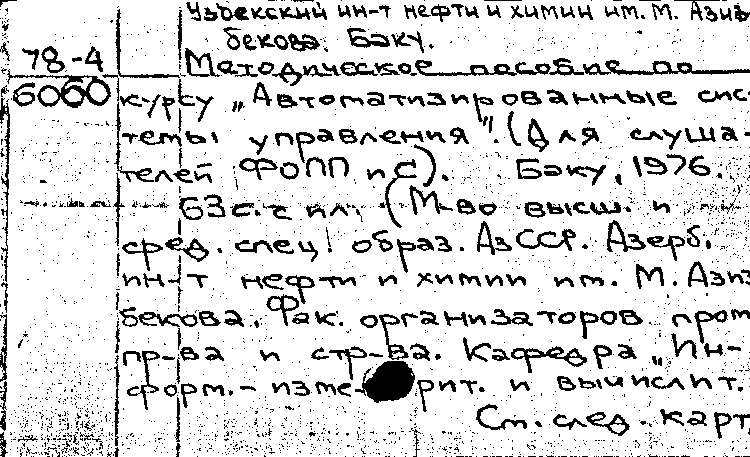 Узбекский ин-т нефти и химии им. М. Азиз
бекова. Баку.
78-4 Матодическое пособие по
6060 курсу „Автоматизированные сис
темы управления". (Для слуша-
телей ФОПП и С). Баку, 1976.
63 с. с ил. (М-во высш. и
сред. спец. образ. АзССР. Азерб.
ин-т нефти и химии им. М. Азиз
бекова. Фак. организаторов пром
пр-ва и стр-ва. Кафедра „Ин-
форм.-изме- рит. и вычислит.
См. след. карт